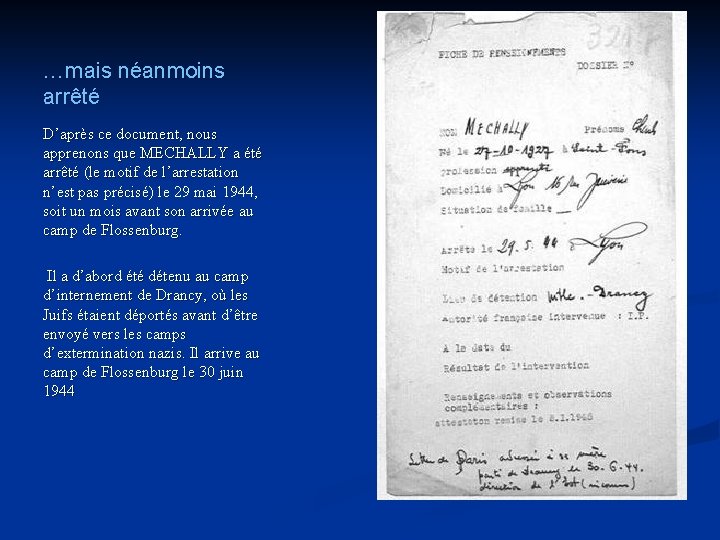 …mais néanmoins
arrêté
D’après ce document, nous
apprenons que MECHALLY a été
arrêté (le motif de l’arrestation
n’est pas précisé) le 29 mai 1944,
soit un mois avant son arrivée au
camp de Flossenburg.
Il a d’abord été détenu au camp
d’internement de Drancy, où les
Juifs étaient déportés avant d’être
envoyé vers les camps
d’extermination nazis. Il arrive au
camp de Flossenburg le 30 juin
1944
FICHE DE RENSEIGNEMENTS
DOSSIER N°
NOM MECHALLY Prénoms
Né le 27-10-1927 à Saint-Fons
profession apprenti
Domicilié à Lyon 16 rue Juiverie
Situation de famille
Arrêté le 29.5.44 à Lyon
Motif de l'arrestation
Lieu de détention - Drancy
Autorité française intervenue : I.P.
A la date du
Résultat de l'intervention
Renseignements et observations
complémentaires :
attestation remise le 8.I.1945
Lettre de Paris adressée à sa mère
parti de Drancy le 30-6-44
direction de l'Est